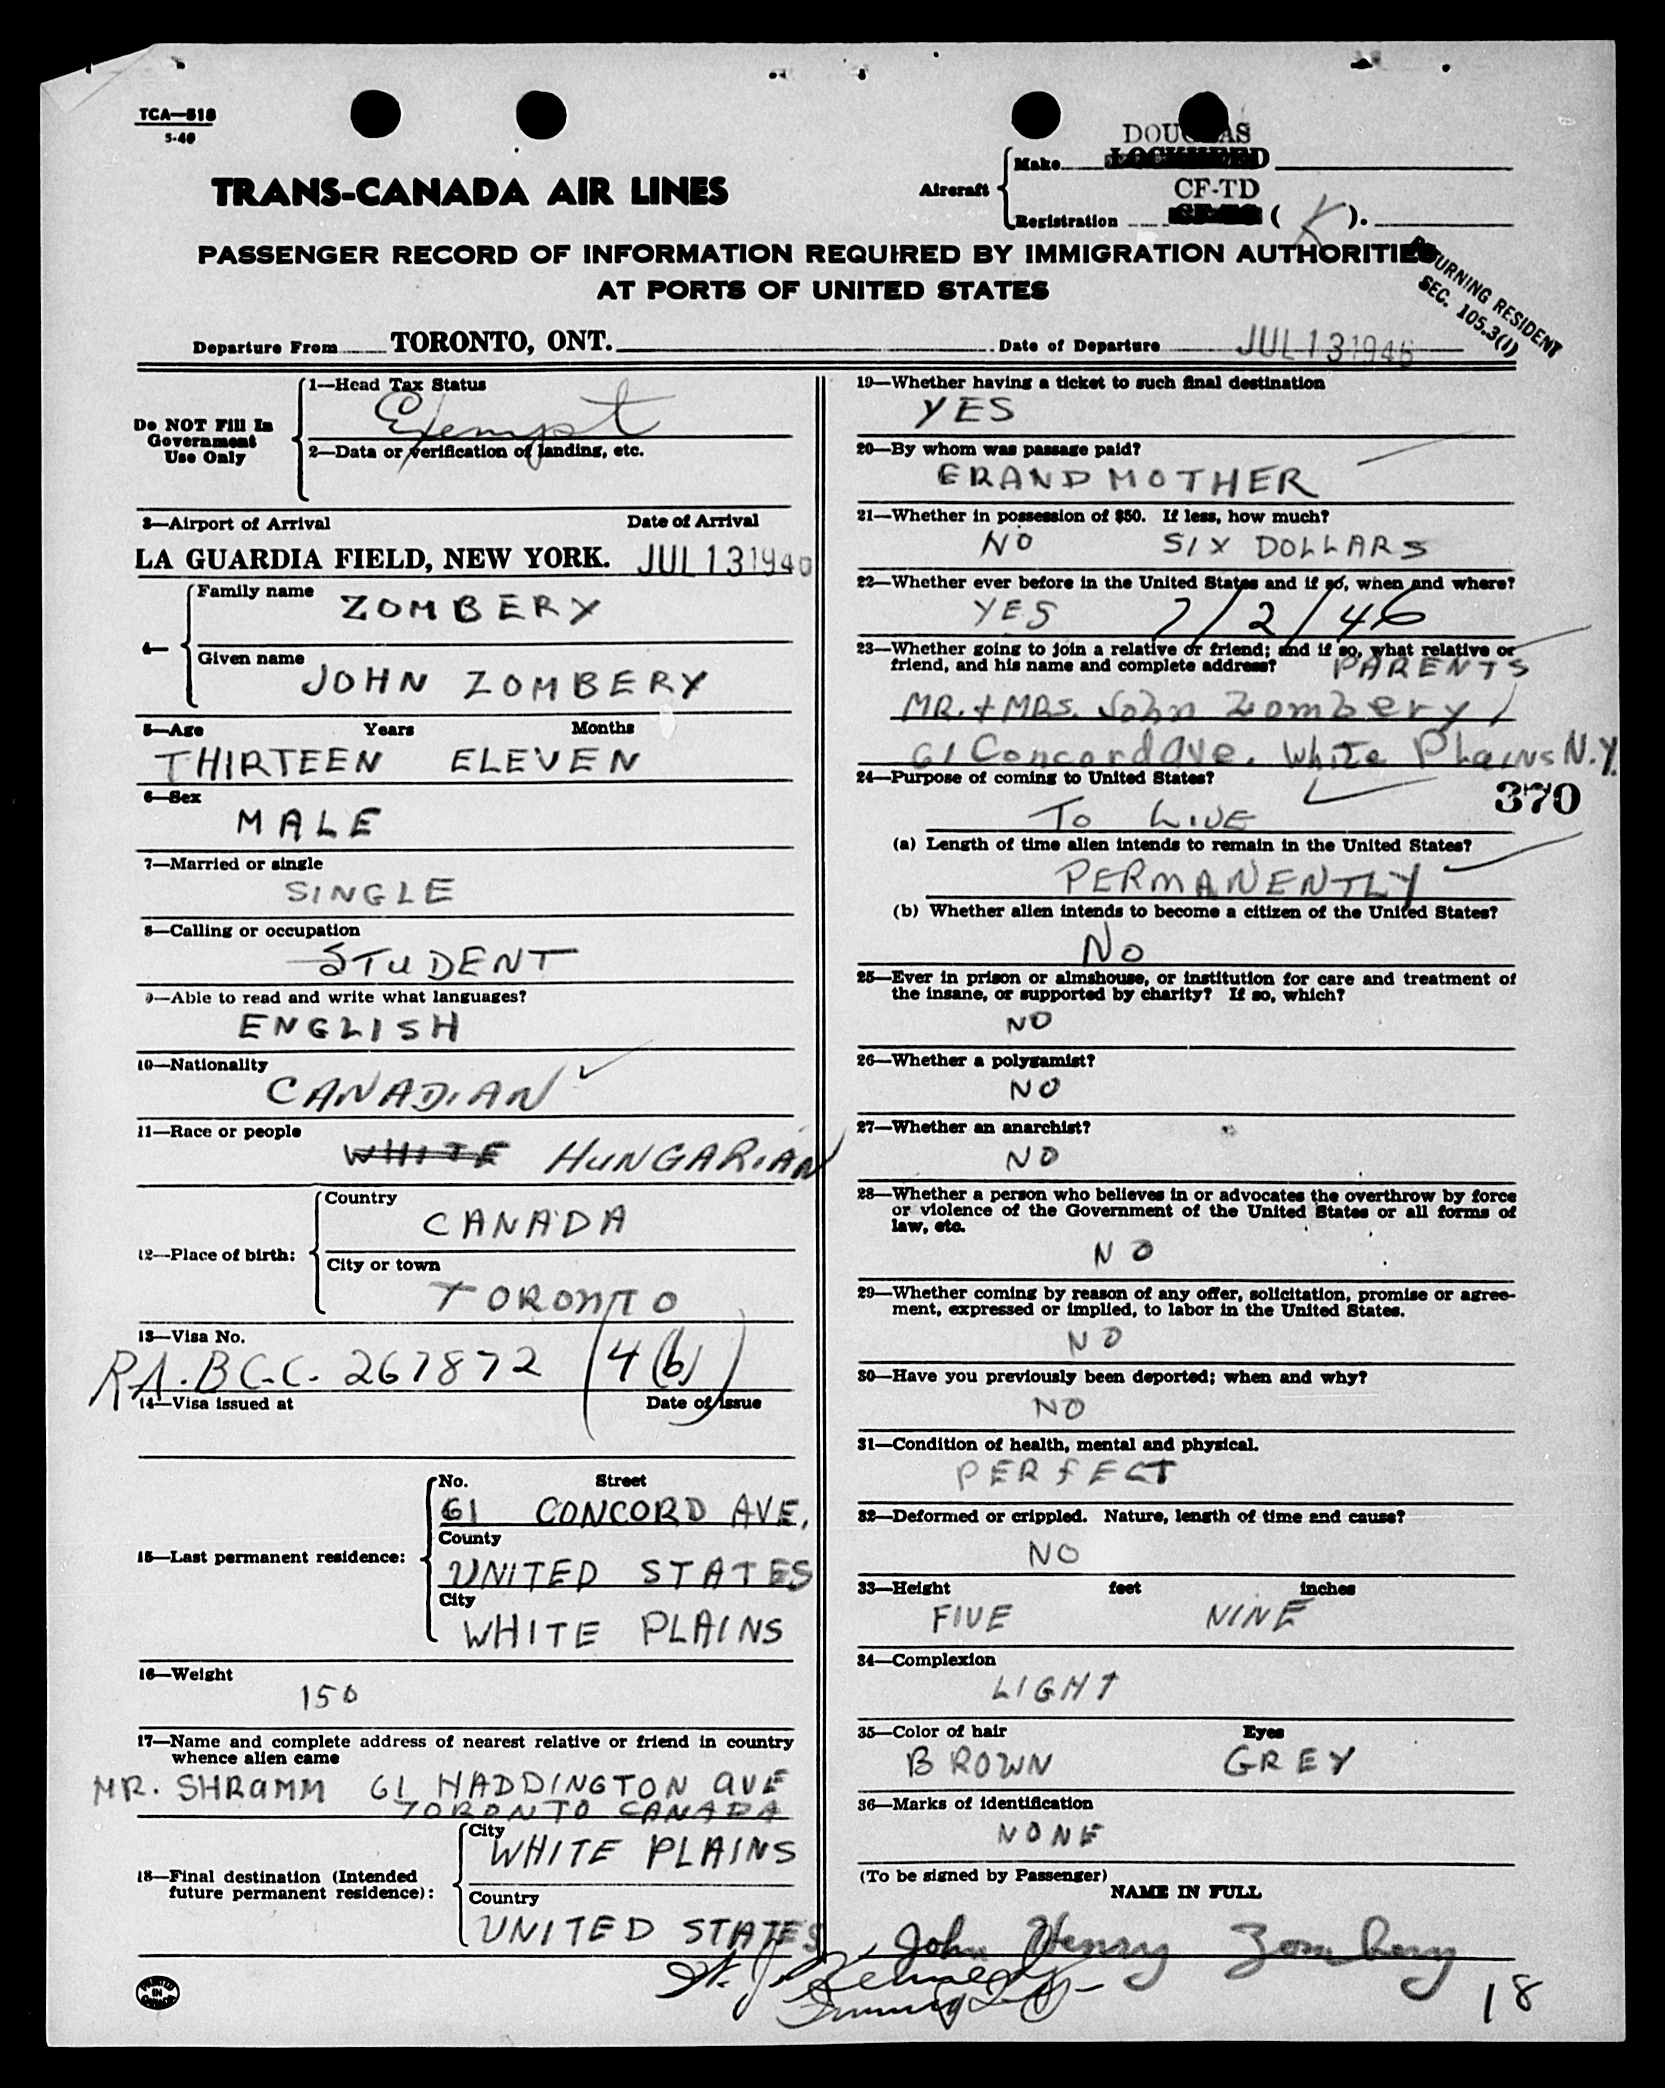 TCA—518
5-40
DOUGLAS
Make LOCKHEED
TRANS-CANADA AIR LINES
Aircraft
CF-TD
Registration ( K ).
PASSENGER RECORD OF INFORMATION REQUIRED BY IMMIGRATION AUTHORITIES
AT PORTS OF UNITED STATES
RETURNING RESIDENT
SEC. 105.3(1)
Departure From TORONTO, ONT. Date of Departure JUL 13 1946
Do NOT Fill In
Government
Use Only
1—Head Tax Status
Exempt
2—Data or verification of landing, etc.
3—Airport of Arrival Date of Arrival
LA GUARDIA FIELD, NEW YORK. JUL 13 1946
4—
Family name
ZOMBERY
Given name
JOHN ZOMBERY
5—Age Years Months
THIRTEEN ELEVEN
6—Sex
MALE
7—Married or single
SINGLE
8—Calling or occupation
STUDENT
9—Able to read and write what languages?
ENGLISH
10—Nationality
CANADIAN
11—Race or people
WHITE HUNGARIAN
12—Place of birth:
Country
CANADA
City or town
TORONTO
13—Visa No.
RA. B C.C. 267872 (4(b))
14—Visa issued at Date of issue
15—Last permanent residence:
No. Street
61 CONCORD AVE.
County
UNITED STATES
City
WHITE PLAINS
16—Weight
150
17—Name and complete address of nearest relative or friend in country
whence alien came
MR. SHRAMM 61 HADDINGTON AVE
TORONTO CANADA
18—Final destination (Intended
future permanent residence):
City
WHITE PLAINS
Country
UNITED STATES
PRINTED
IN
CANADA
19—Whether having a ticket to such final destination
YES
20—By whom was passage paid?
GRANDMOTHER
21—Whether in possession of $50. If less, how much?
NO SIX DOLLARS
22—Whether ever before in the United States and if so, when and where?
YES 7/2/46
23—Whether going to join a relative or friend; and if so, what relative or
friend, and his name and complete address? PARENTS
MR. + MRS. John Zombery
61 Concord ave. White Plains N.Y.
24—Purpose of coming to United States?
370
To LIVE
(a) Length of time alien intends to remain in the United States?
PERMANENTLY
(b) Whether alien intends to become a citizen of the United States?
No
25—Ever in prison or almshouse, or institution for care and treatment of
the insane, or supported by charity? If so, which?
NO
26—Whether a polygamist?
NO
27—Whether an anarchist?
NO
28—Whether a person who believes in or advocates the overthrow by force
or violence of the Government of the United States or all forms of
law, etc.
NO
29—Whether coming by reason of any offer, solicitation, promise or agree-
ment, expressed or implied, to labor in the United States.
NO
30—Have you previously been deported; when and why?
NO
31—Condition of health, mental and physical.
PERFECT
32—Deformed or crippled. Nature, length of time and cause?
NO
33—Height feet inches
FIVE NINE
34—Complexion
LIGHT
35—Color of hair Eyes
BROWN GREY
36—Marks of identification
NONE
(To be signed by Passenger)
NAME IN FULL
John Henry Zombery
Kennedy
18